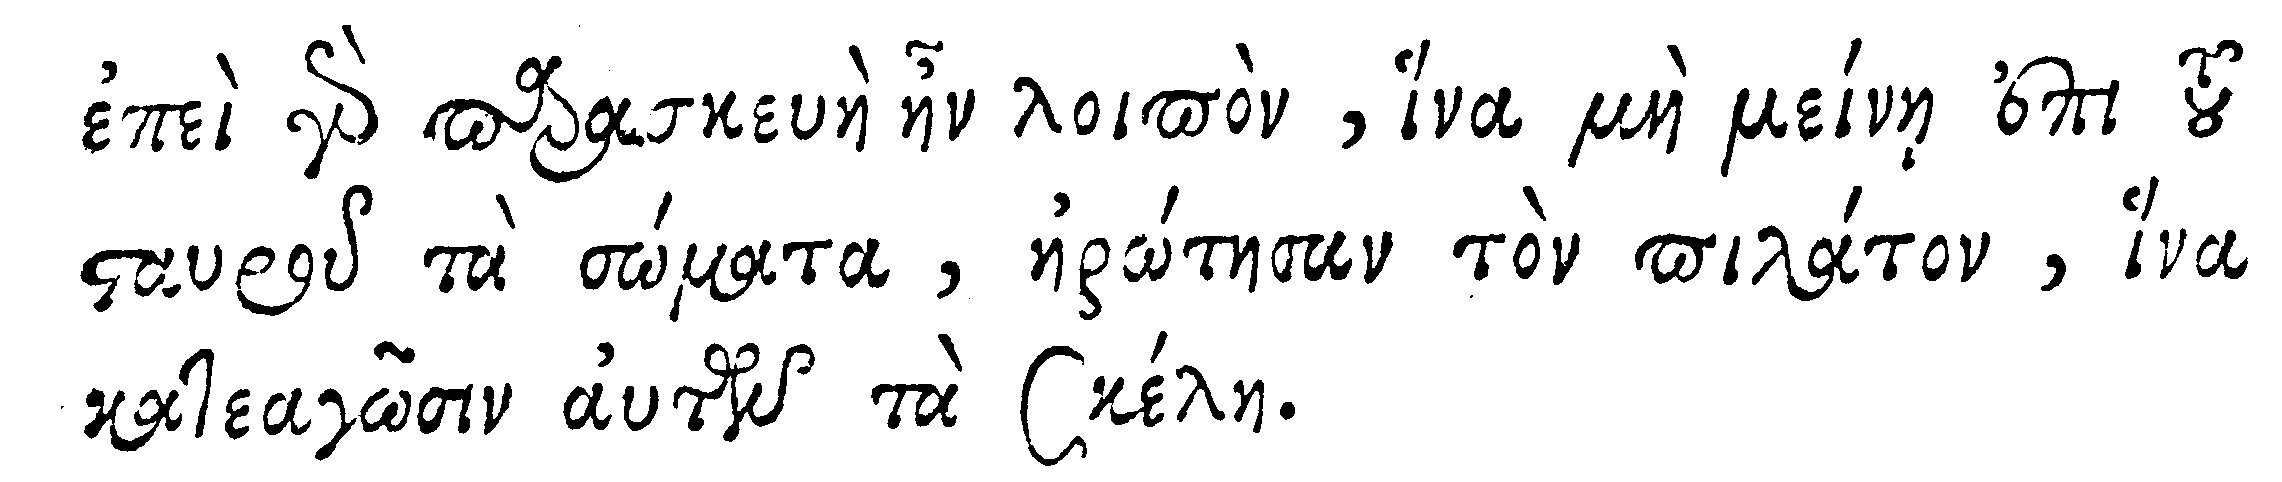 ἐπεὶ γὰρ παρασκευὴ ἦν λοιπὸν, ἵνα μὴ μείνῃ ἐπὶ τοῦ
σταυροῦ τὰ σώματα, ἠρώτησαν τὸν πιλάτον, ἵνα
κατεαγῶσιν αὐτῶν τὰ σκέλη.